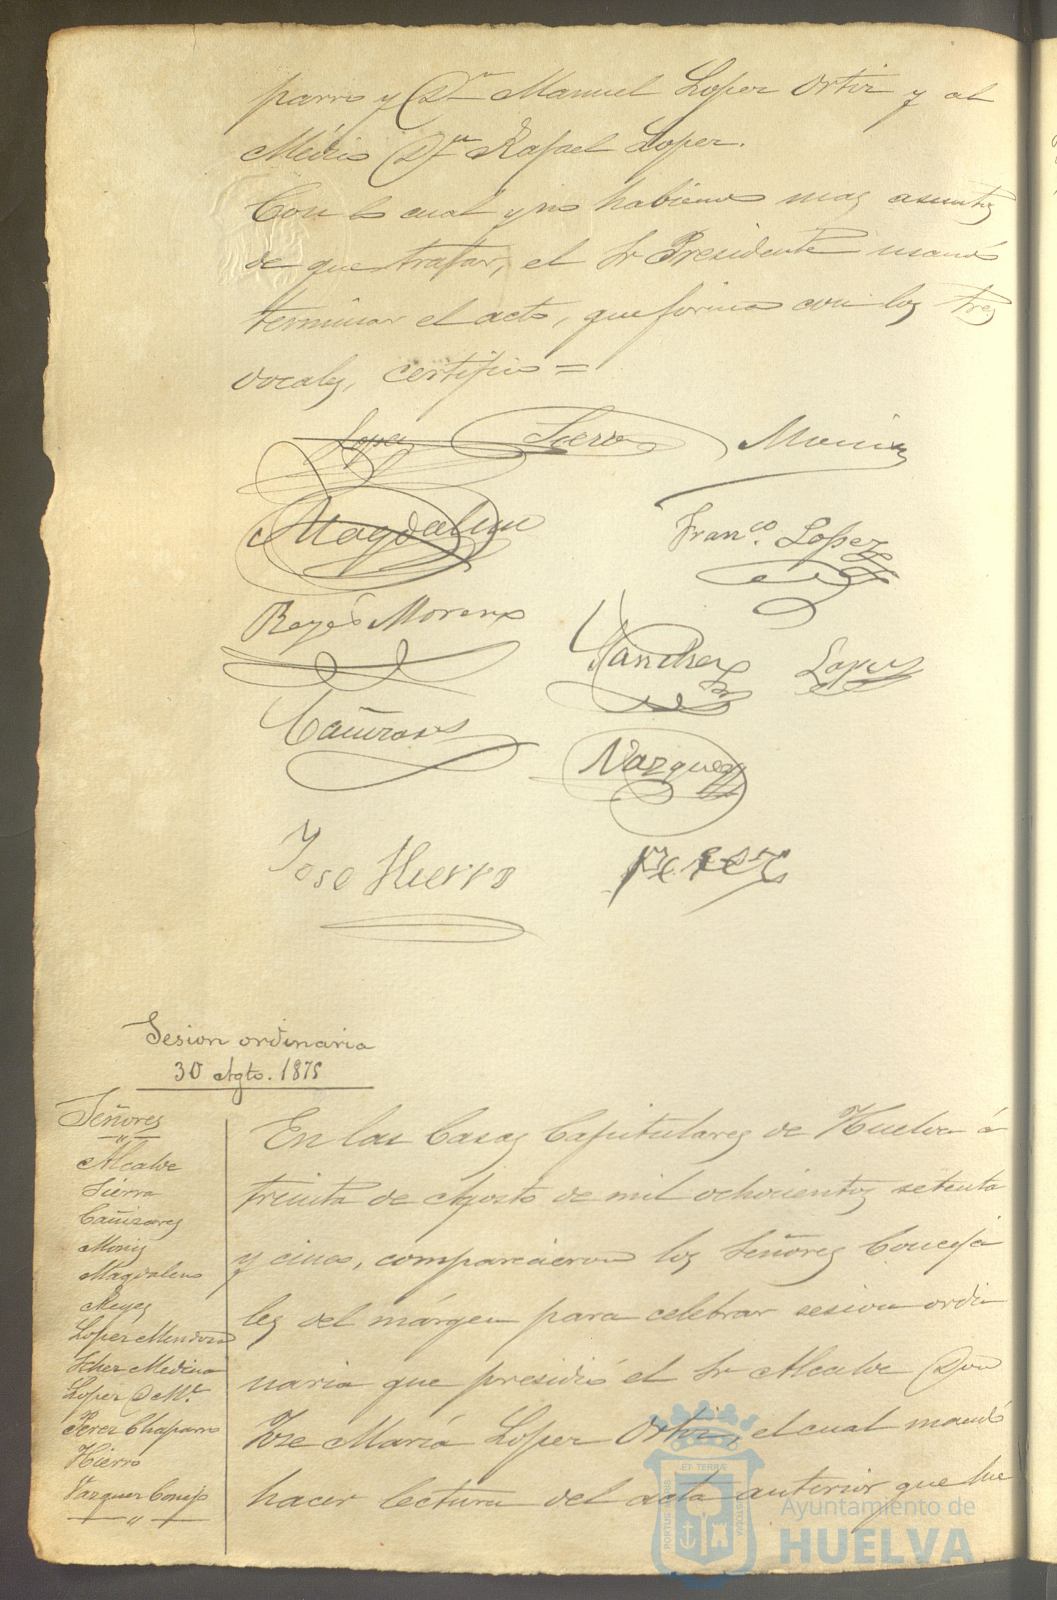 parro y Dn Manuel Lopez Ortiz y al
Médico Dn Rafael Lopez.
Con lo cual y no habiendo mas asuntos
de que tratar, el Sr Presidente mandó
terminar el acto, que firma con los Sres
vocales, certifico =
Lopez Sierra Moniz
Magdaleno Franco. Lopez
Reyes Moreno Sanchez Lopez
Cañizares Vazquez
Jose Hierro Perez
Sesion ordinaria
30 Agto. 1875
Señores
Alcalde
Sierra
Cañizares
Moniz
Magdaleno
Reyes
Lopez Mendoza
Schez Medina
Lopez D. Ml.
Perez Chaparro
Hierro
Vazquez Conejo
En las Casas Capitulares de Huelva á
treinta de Agosto de mil ochocientos setenta
y cinco, comparecieron los Señores Conceja
les del márgen para celebrar sesion ordi
naria que presidió el Sr Alcalde Don
Jose María Lopez Ortiz, el cual mandó
hacer lectura del acta anterior que fue
PORTUS MARIS ET TERRÆ CUSTODIA
Ayuntamiento de
HUELVA